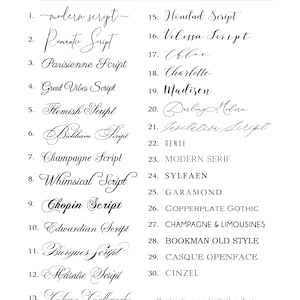 1. modern script
2. Romantic Script
3. Parisienne Script
4. Great Vibes Script
5. Flemish Script
6. Bickham Script
7. Champagne Script
8. Whimsical Script
9. Chopin Script
10. Edwardian Script
11. Burgues Script
12. Script
15. Script
16. Velissa Script
17. Chloe
18. Charlotte
19. Madison
20. Darling Modern
21. Invitation Script
22. DENSE
23. MODERN SERIF
24. SYLFAEN
25. GARAMOND
26. COPPERPLATE GOTHIC
27. CHAMPAGNE & LIMOUSINES
28. BOOKMAN OLD STYLE
29. CASQUE OPENFACE
30. CINZEL